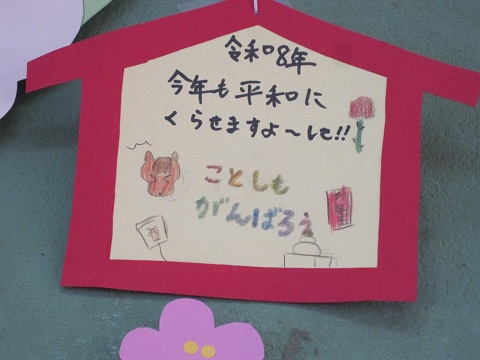 令和8年
今年も平和に
くらせますよ〜に!!
ことしも
がんばろう